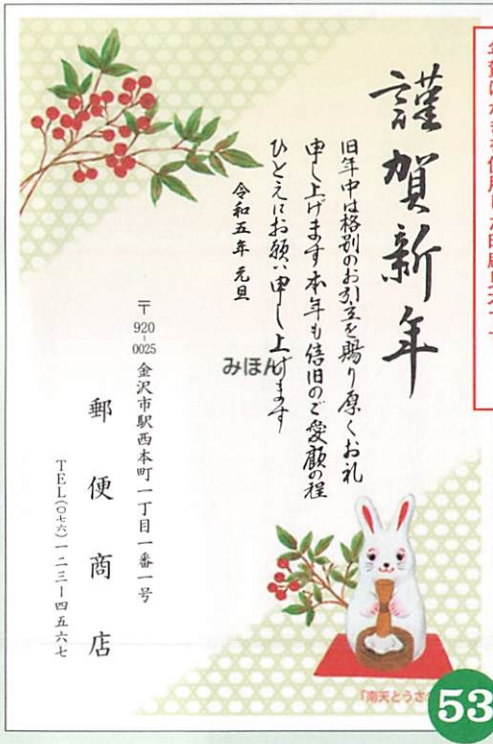 謹賀新年
旧年中は格別のお引立を賜り厚くお礼
申し上げます本年も倍旧のご愛顧の程
ひとえにお願い申し上げます
令和五年 元旦
みほん
〒920-0025 金沢市駅西本町一丁目一番一号
郵便商店
TEL(〇七六)一二三ー四五六七
「南天とうさ
53